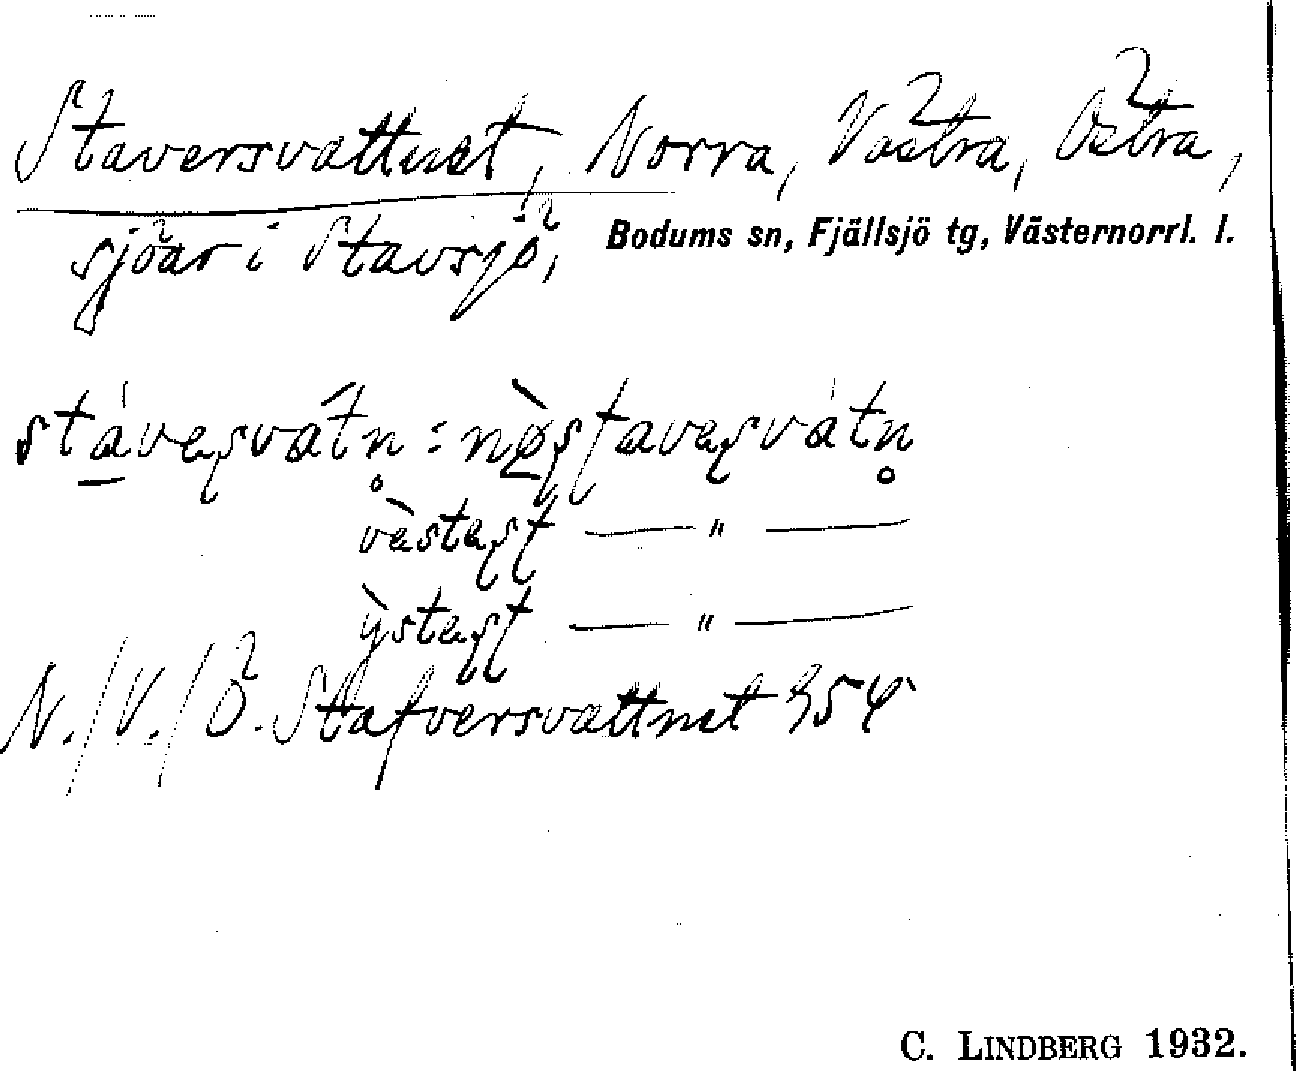 Staversvattnet, Norra, Västra, Östra,
sjöar i Stavsjö, Bodums sn, Fjällsjö tg, Västernorrl. l.
stáveʂvátn̥ : nø̀ʂʈaveʂvátn̥
vàsteʂʈ — " —
ỳsteʂʈ — " —
N./V./Ö. Stafversvattnet 354
C. LINDBERG 1932.